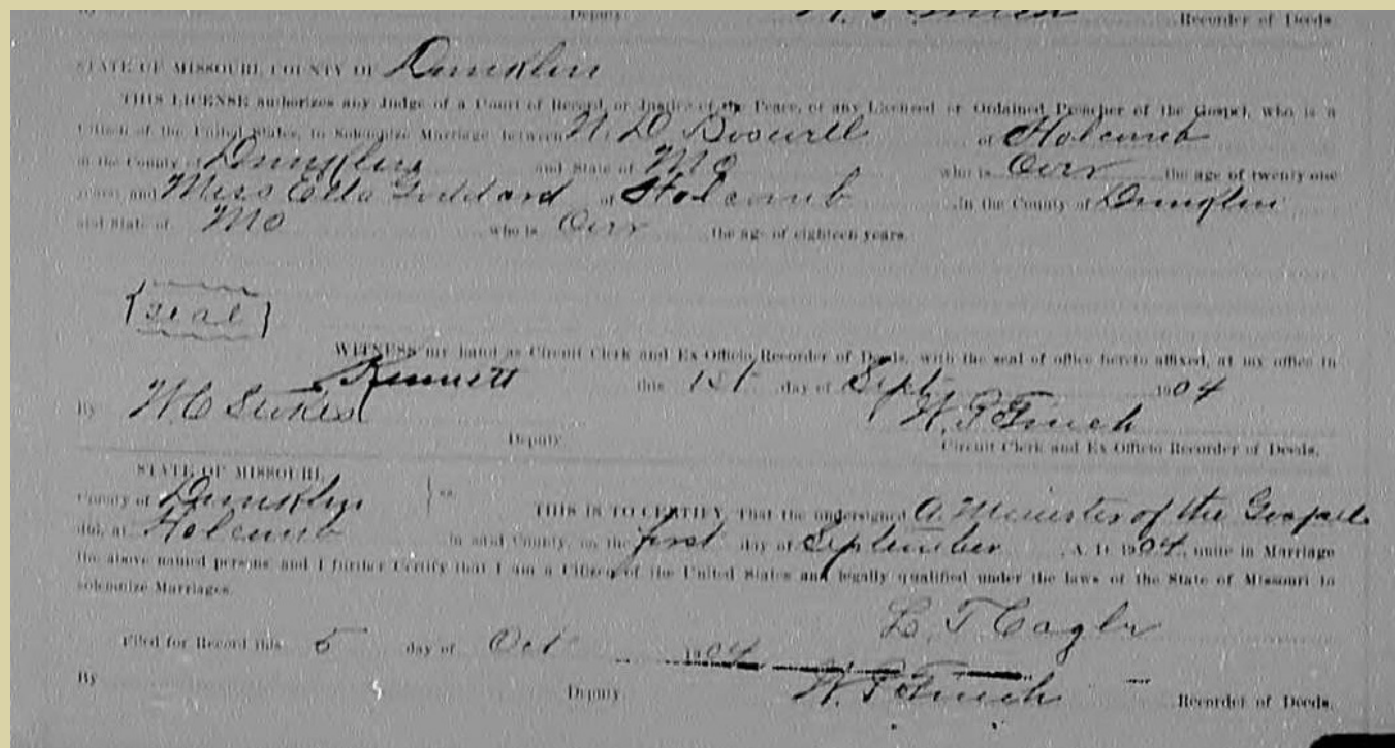 By Deputy Recorder of Deeds.
STATE OF MISSOURI, COUNTY OF Dunklin
THIS LICENSE authorizes any Judge of a Court of Record, or Justice of the Peace, or any Licensed or Ordained Preacher of the Gospel, who is a
Citizen of the United States, to Solemnize Marriage between N. D. Boswell of Holcomb
in the County of Dunklin and State of Mo who is Over the age of twenty one
years and Miss Ella Goddard of Holcomb in the County of Dunklin
and State of Mo who is Over the age of eighteen years.
{seal}
WITNESS my hand as Circuit Clerk and Ex Officio Recorder of Deeds, with the seal of office hereto affixed, at my office in
Kennett this 1st day of Sept 1904
By W. C. Stokes Deputy W. P. Finch
Circuit Clerk and Ex Officio Recorder of Deeds.
STATE OF MISSOURI,
County of Dunklin } ss. THIS IS TO CERTIFY, That the undersigned A Minister of the Gospel
did, at Holcomb in said County, on the first day of September A. D. 1904, unite in Marriage
the above named persons and I further Certify that I am a Citizen of the United States and legally qualified under the laws of the State of Missouri to
solemnize Marriages.
L. T. Cagle
Filed for Record this 5 day of Oct 1904
By Deputy W. P. Finch Recorder of Deeds.